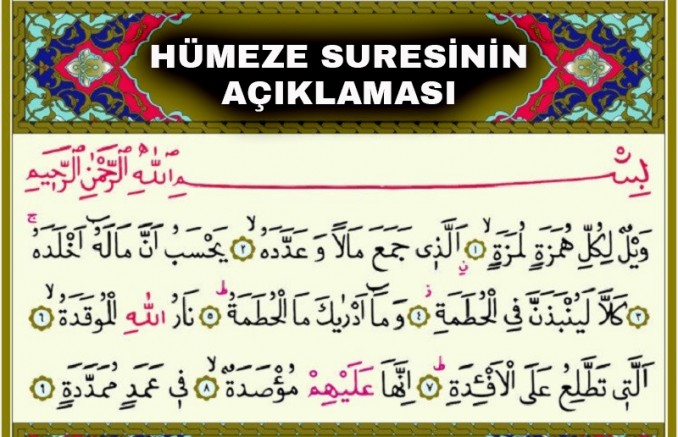 HÜMEZE SURESİNİN
AÇIKLAMASI
بِسْمِ اللّٰهِ الرَّحْمٰنِ الرَّحٖيمِ
وَيْلٌ لِكُلِّ هُمَزَةٍ لُمَزَةٍۙ ﴿١﴾ اَلَّذٖى جَمَعَ مَالًا وَ عَدَّدَهُۙ ﴿٢﴾ يَحْسَبُ اَنَّ مَالَهُٓ اَخْلَدَهُۚ
﴿٣﴾ كَلَّا لَيُنْبَذَنَّ فِى الْحُطَمَةِؗ ﴿٤﴾ وَمَٓا اَدْرٰيكَ مَا الْحُطَمَةُؕ ﴿٥﴾ نَارُ اللّٰهِ الْمُوقَدَةُۙ ﴿٦﴾
اَلَّتٖى تَطَّلِعُ عَلَى الْاَفْـِٔدَةِؕ ﴿٧﴾ اِنَّهَا عَلَيْهِمْ مُؤْصَدَةٌۙ ﴿٨﴾ فٖى عَمَدٍ مُمَدَّدَةٍ ﴿٩﴾